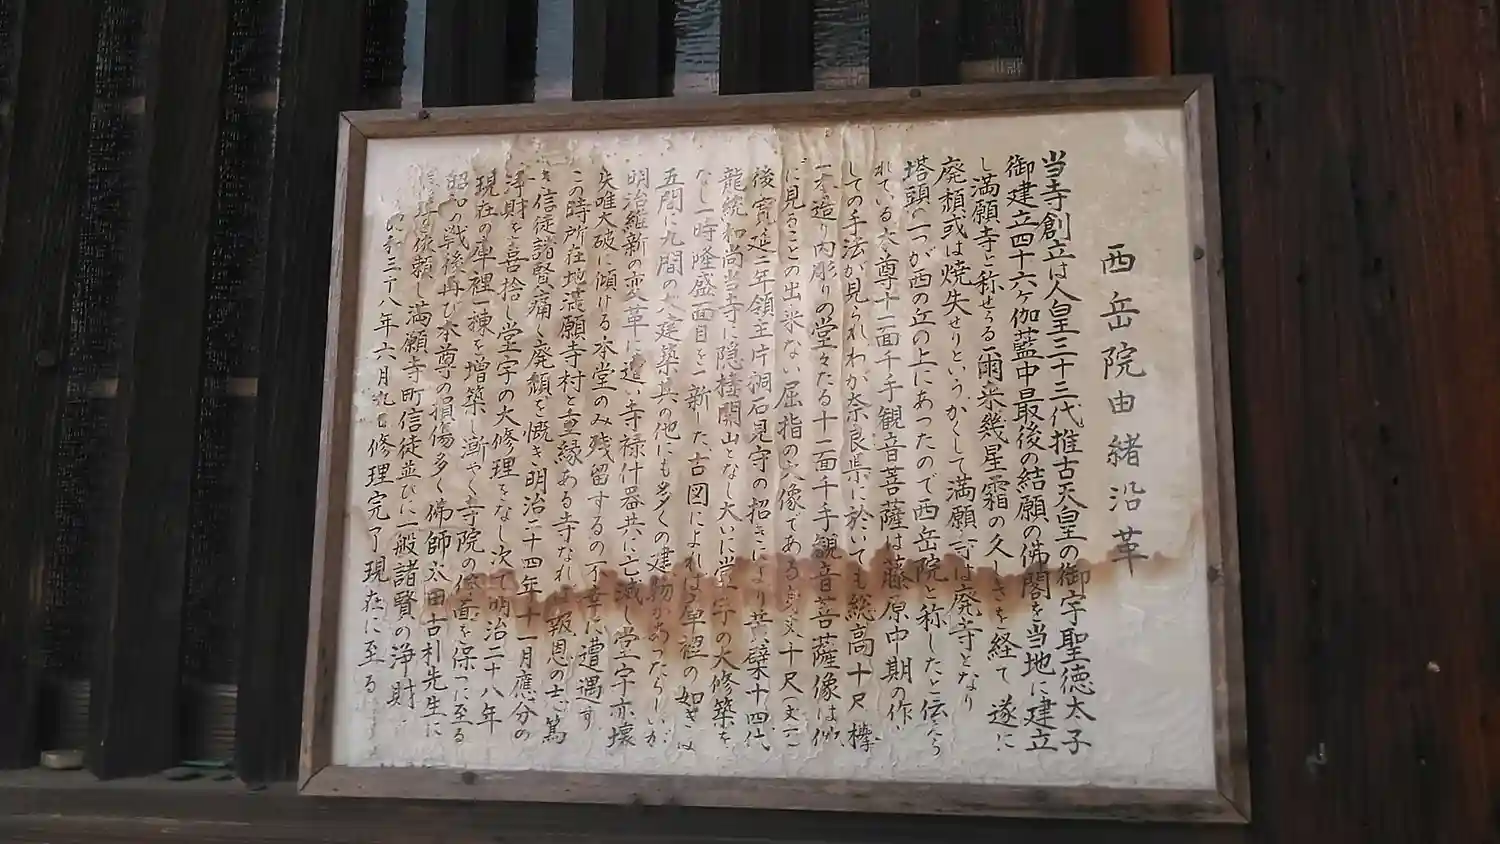 西岳院由緒沿革
当寺創立は人皇三十三代推古天皇の御宇聖徳太子
御建立四十六ヶ伽藍中最後の結願の佛閣を当地に建立
し満願寺と称せらる爾来幾星霜の久しきを経て遂に
廃頽或は焼失せりというかくして満願寺は廃寺となり
塔頭の一つが西の丘の上にあったので西岳院と称したと伝えら
れている本尊十一面千手観音菩薩は藤原中期の作
しての手法が見られわが奈良県に於いても総高十尺欅
一木造り内彫りの堂々たる十一面千手観音菩薩像は他
に見ることの出来ない屈指の像である
後宝延二年領主片桐石見守の招きにより黄檗十四代
龍統和尚当寺に隠棲開山となし大いに堂宇の大修築を
なし一時隆盛面目を一新した古図によれば庫裡の如きは
五間に九間の大建築其の他にも多くの建物があったらしいが
明治維新の変革に遭い寺禄什器共に亡滅し堂宇亦壊
失唯大破に傾ける本堂のみ残留するの不幸に遭遇す
この時所在地満願寺村と重縁ある寺なれば報恩の志篤
き信徒諸賢痛く廃頽を慨き明治二十四年十一月應分の
浄財を喜捨し堂宇の大修理をなし次で明治二十八年
現在の庫裡一棟を増築し漸やく寺院の体面を保つに至る
昭和の戦後再び本尊の損傷多く佛師太田古利先生に
依頼し満願寺町信徒並びに一般諸賢の浄財
昭和三十八年六月修理完了現在に至る